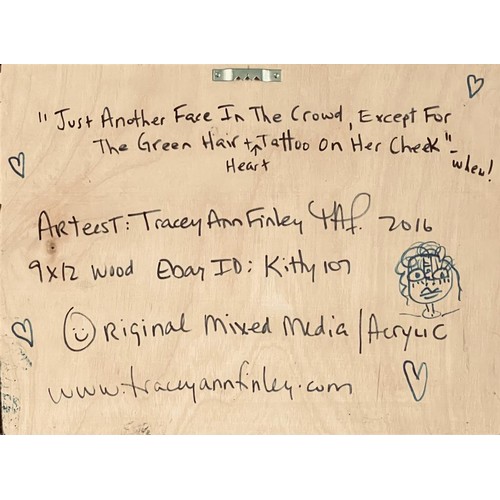 "Just Another Face In The Crowd, Except For
The Green Hair + Heart Tattoo On Her Cheek" - whew!
Arteest: Tracey Ann Finley TAF. 2016
9x12 wood Ebay ID: Kitty107
Original Mixed Media/Acrylic
www.traceyannfinley.com